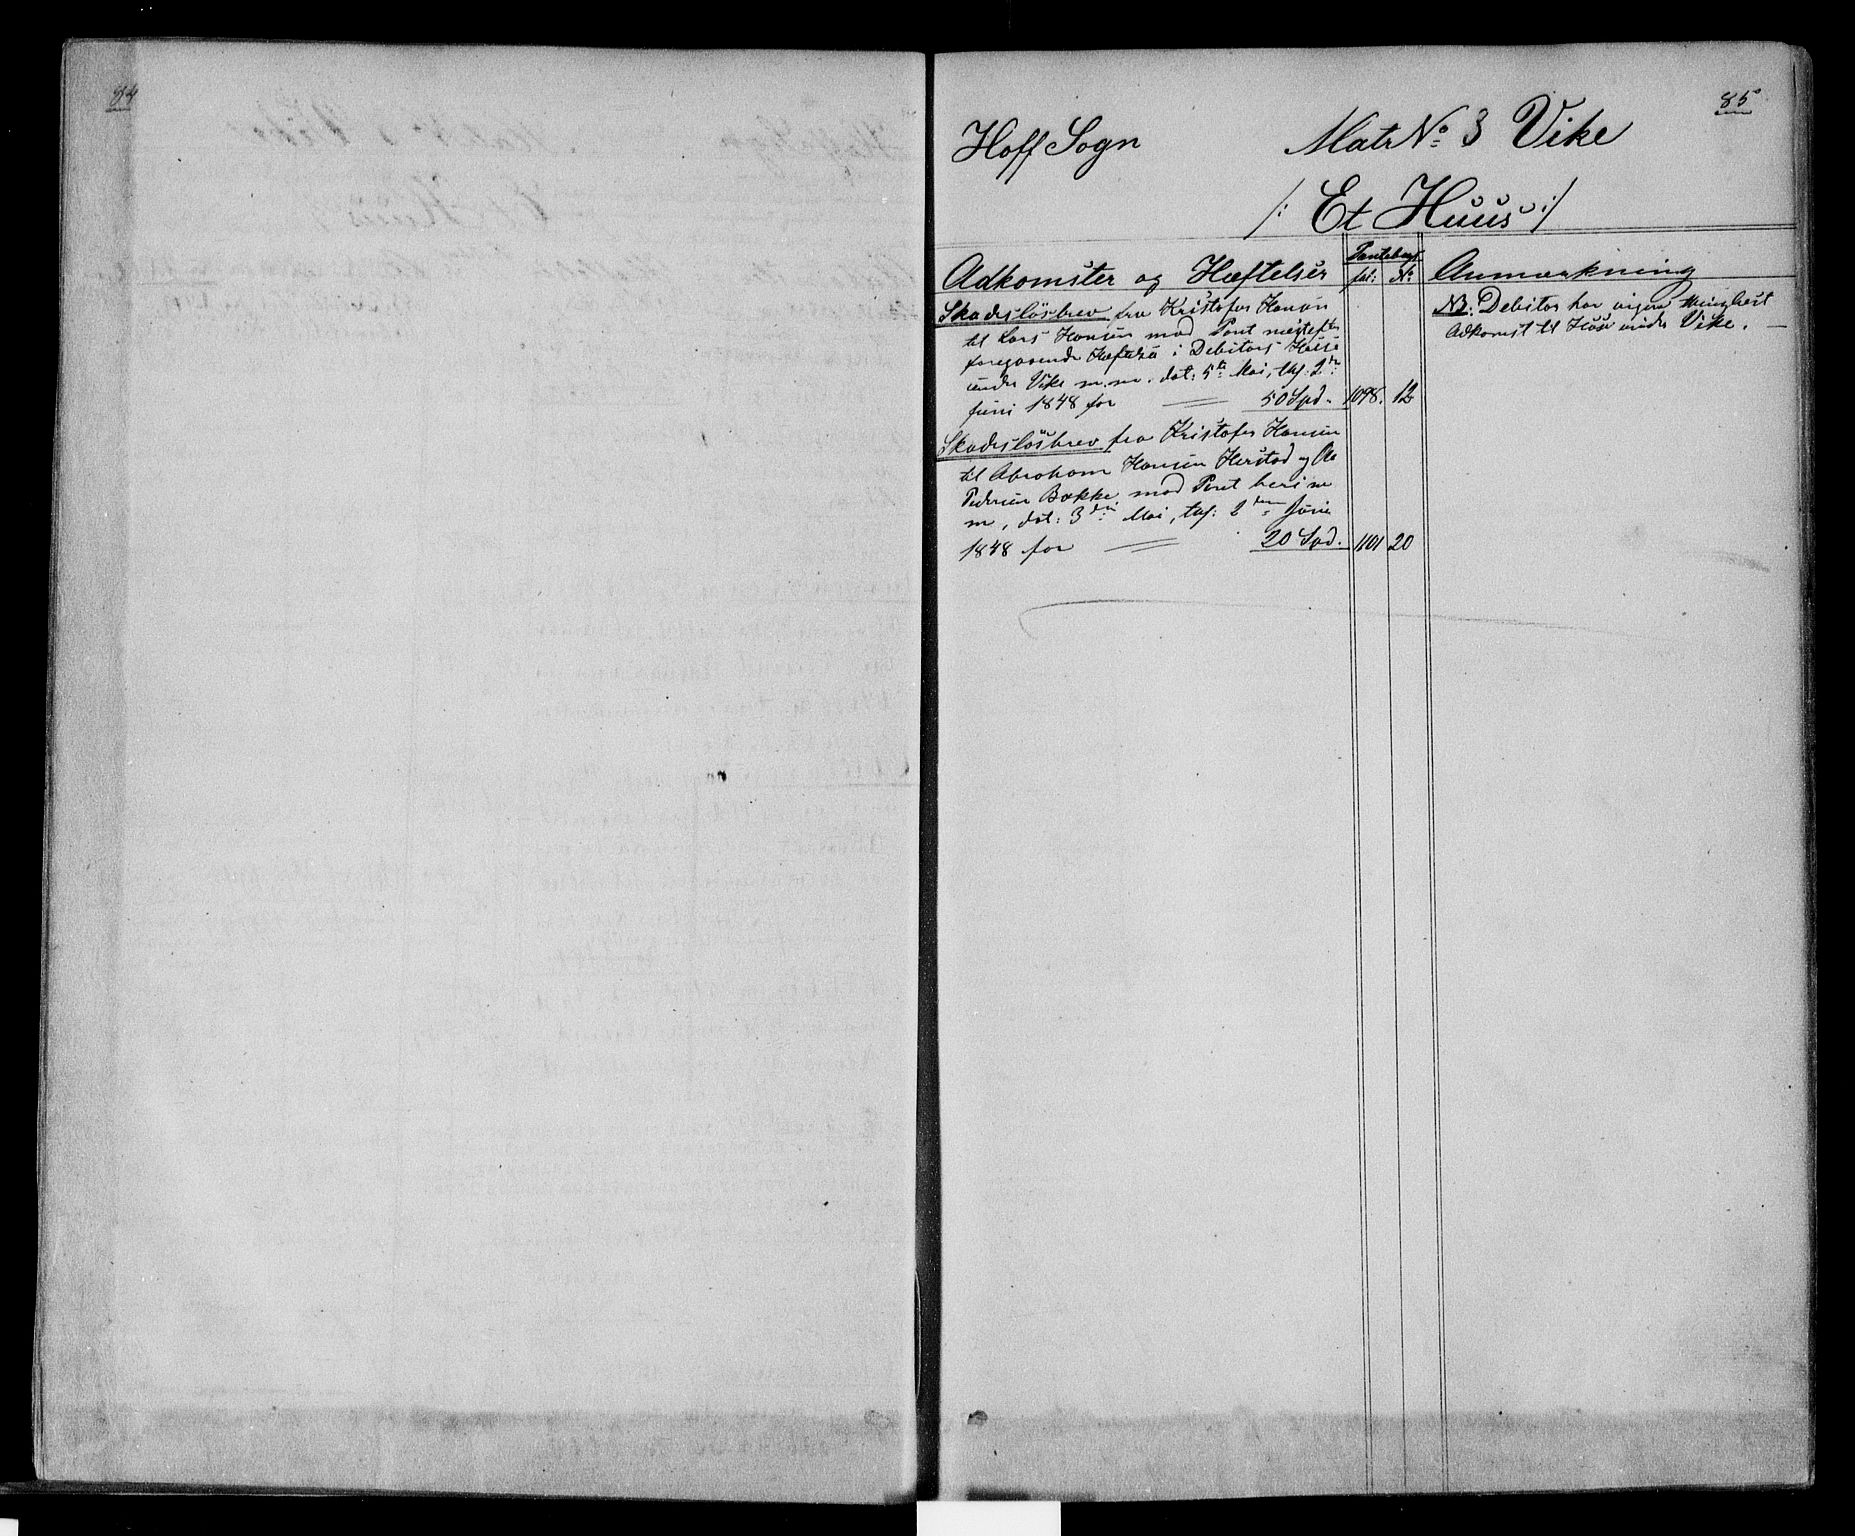 84
85
Hoff Sogn
Matr No 3 Vike
/: Et Huus :/
Adkomster og Hæftelser
Pantebog
fol: No
Anmærkning
Skadesløsbrev fra Kristofer Hansen
til Lars Hansen mod Pant næstefter
foregaaende Hæftelse i Debitors Huse
under Vike m.m. dat: 5te Mai, thgl: 2den
Juni 1848 for 50 Spd. 1098. 12
Skadesløsbrev fra Kristofer Hansen
til Abraham Hansen Herstad og
Pedersen Bække mod Pant heri m
m, dat: 3die Mai, thgl: 2den Juni
1848 for 20 Spd. 1101 20
NB. Debitor har ingen thinglæst
Adkomst til Huse under Vike. —